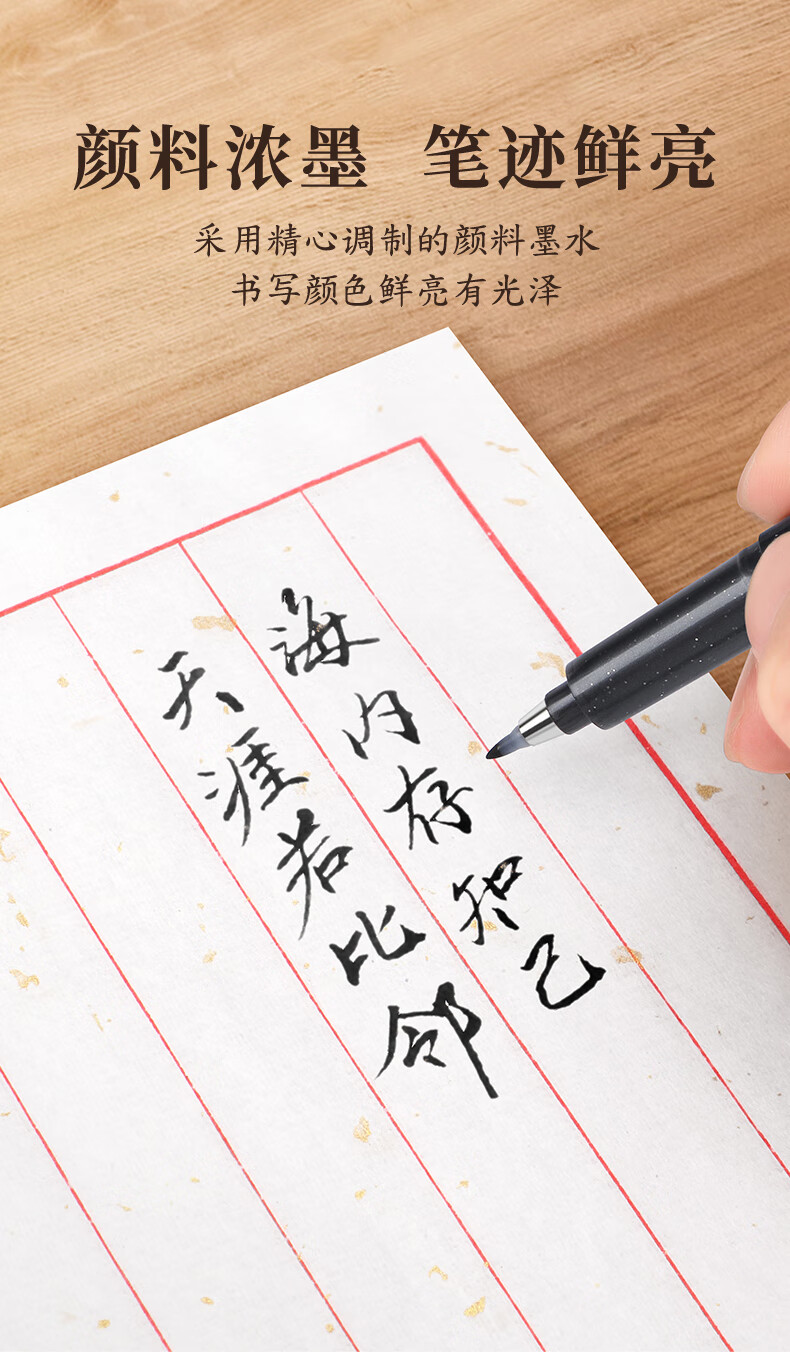 颜料浓墨 笔迹鲜亮
采用精心调制的颜料墨水
书写颜色鲜亮有光泽
海内存知己
天涯若比邻